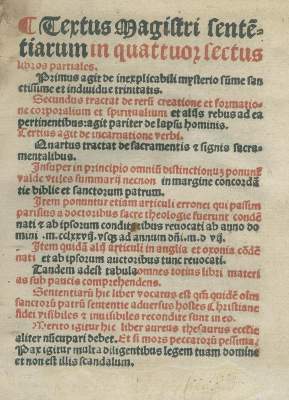 ¶ Textus Magistri sentē-
tiarum in quattuor sectus
libros partiales.
Primus agit de inexplicabili mysterio sūme san
ctissime et indiuidue trinitatis.
Secundus tractat de rerū creatione et formatio
ne corporalium et spiritualium et aliis rebus ad ea
pertinentibus: agit pariter de lapsu hominis.
Tertius agit de incarnatione verbi.
Quartus tractat de sacramentis & signis sacra
mentalibus.
Insuper in principio omniū distinctionum ponunt
valde vtiles summarij necnon in margine concordā
tie biblie et sanctorum patrum.
Item ponuntur etiam articuli erronei qui passim
parisius a doctoribus sacre theologie fuerunt condē
nati & ab ipsorum conditoribus reuocati ab anno do
mini .m. cclxxvij. vsqz ad annum dn̄i .m. d vij.
Item quidā alij articuli in anglia et oxonia cōdē
nati et ab ipsorum auctoribus tunc reuocati.
Tandem adest tabula omnes totius libri materi
as sub paucis comprehendens.
Sententiarū hic liber vocatus est qm̄ quidē oīm
sanctorū patrū sententie aduersus hostes Christiane
fidei visibiles & inuisibiles recondite sunt in eo.
Merito igitur hic liber aureus thesaurus ecclīe
aliter nūcupari debet. Et si mors peccatorū pessima:
Pax igitur multa diligentibus legem tuam domine
et non est illis scandalum.